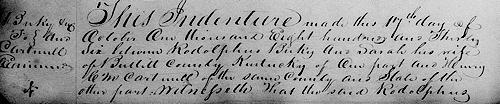 This Indenture made this 17th day of
October Ann thousand Eight hundred and Thirty
Six between Rodolphus Birky and Sarah his wife
of Bullitt County Kentucky of One part and Henry
C M Cartmill of the same County and State of the
other part. Witnesseth That the said Rodolphus
Birky
and
Cartmill